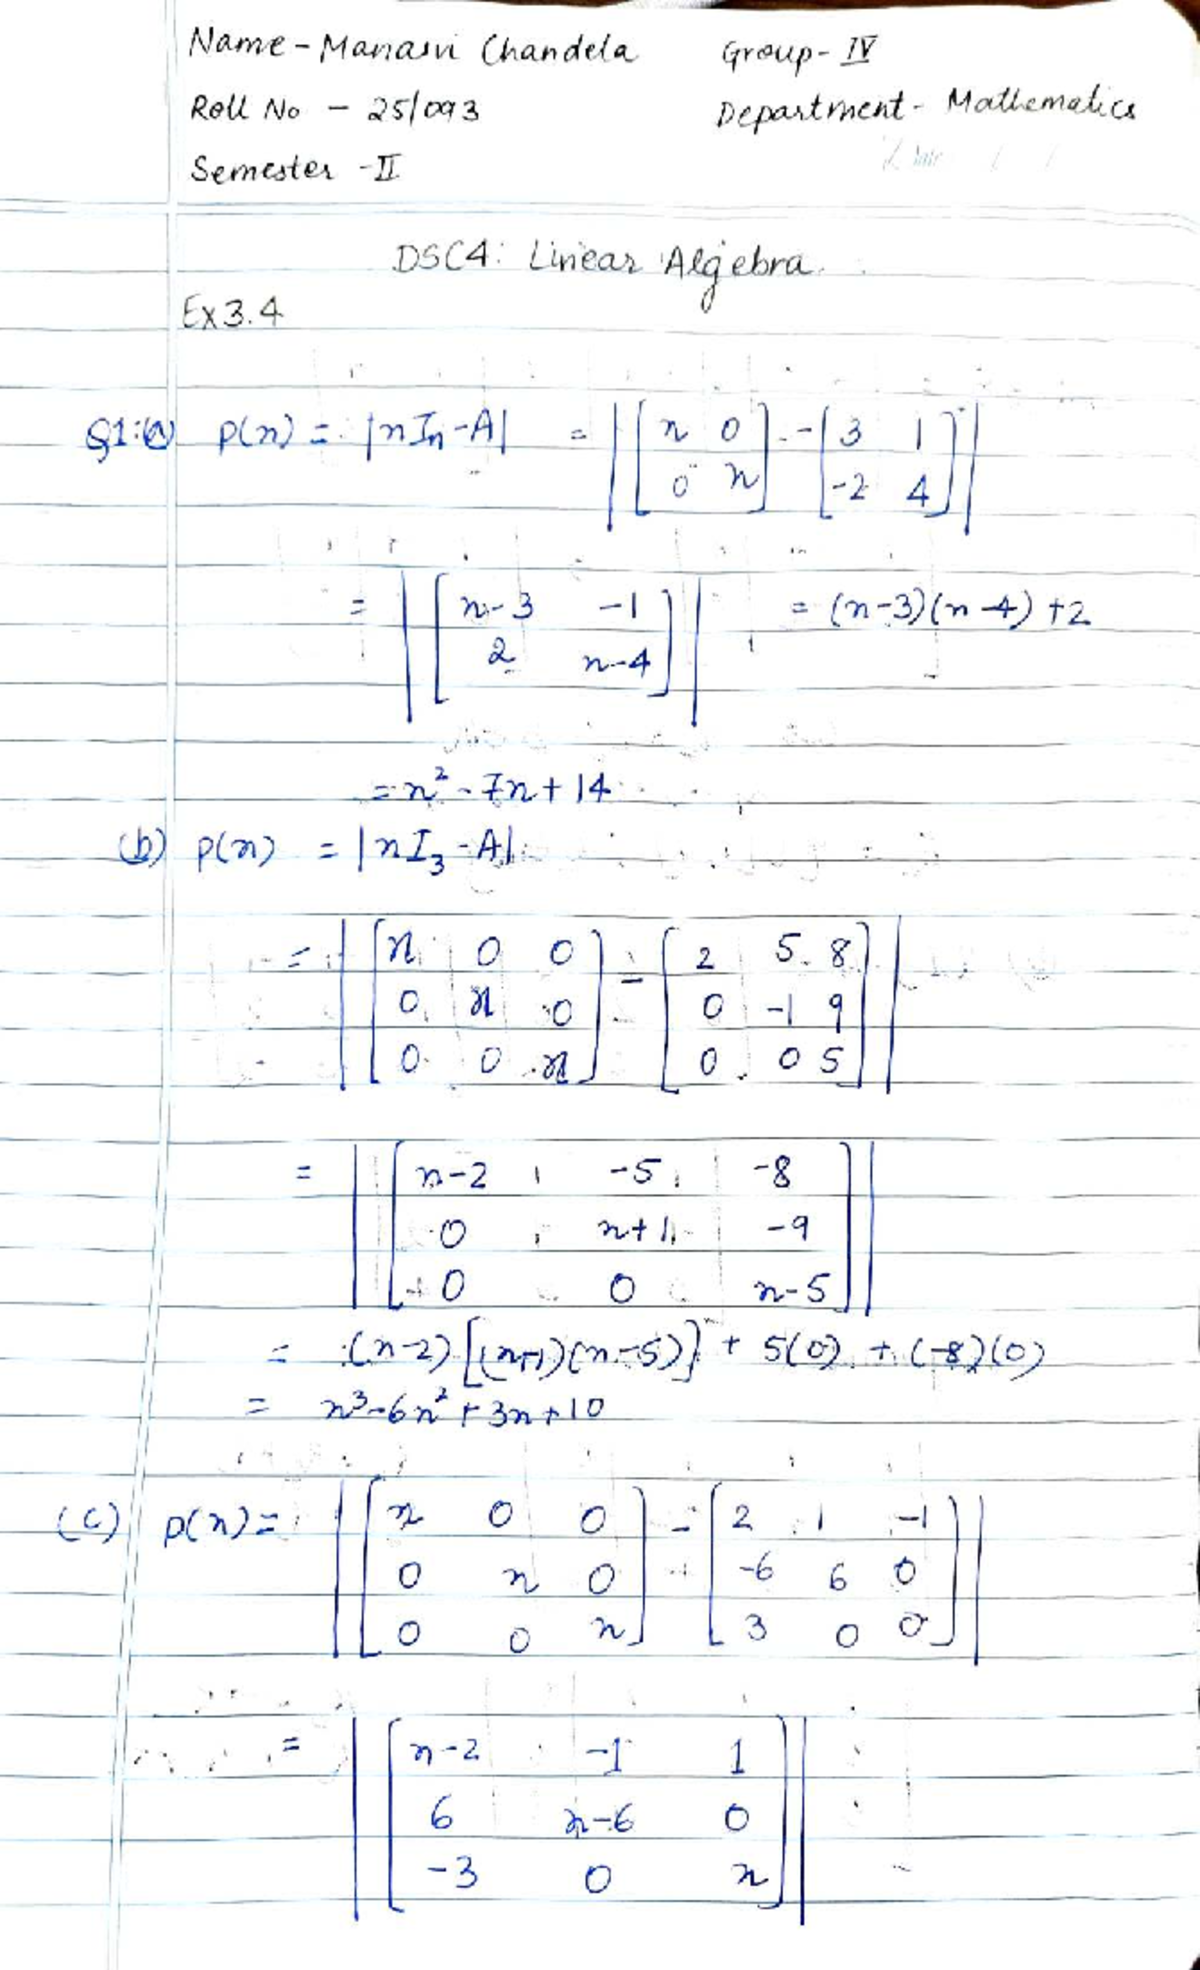 Name - Manasvi Chandela Group - IV
Roll No - 25/093 Department - Mathematics
Semester - II
Date / /
DSC4: Linear Algebra
Ex 3.4
Q1:(a) p(x) = |xIn - A| = |[x 0] - [3 1]|
[0 x] [-2 4]
= |[x-3 -1]| = (x-3)(x-4)+2
[2 x-4]
= x² - 7x + 14
(b) p(x) = |xI₃ - A|
= |[x 0 0] - [2 5 8]|
[0 x 0] [0 -1 9]
[0 0 x] [0 0 5]
= |[x-2 -5 -8]|
[0 x+1 -9]
[0 0 x-5]
= (x-2)[(x+1)(x-5)] + 5(0) + (-8)(0)
= x³ - 6x² + 3x + 10
(c) p(x) = |[x 0 0] - [2 1 -1]|
[0 x 0] [-6 6 0]
[0 0 x] [3 0 0]
= |[x-2 -1 1]|
[6 x-6 0]
[-3 0 x]